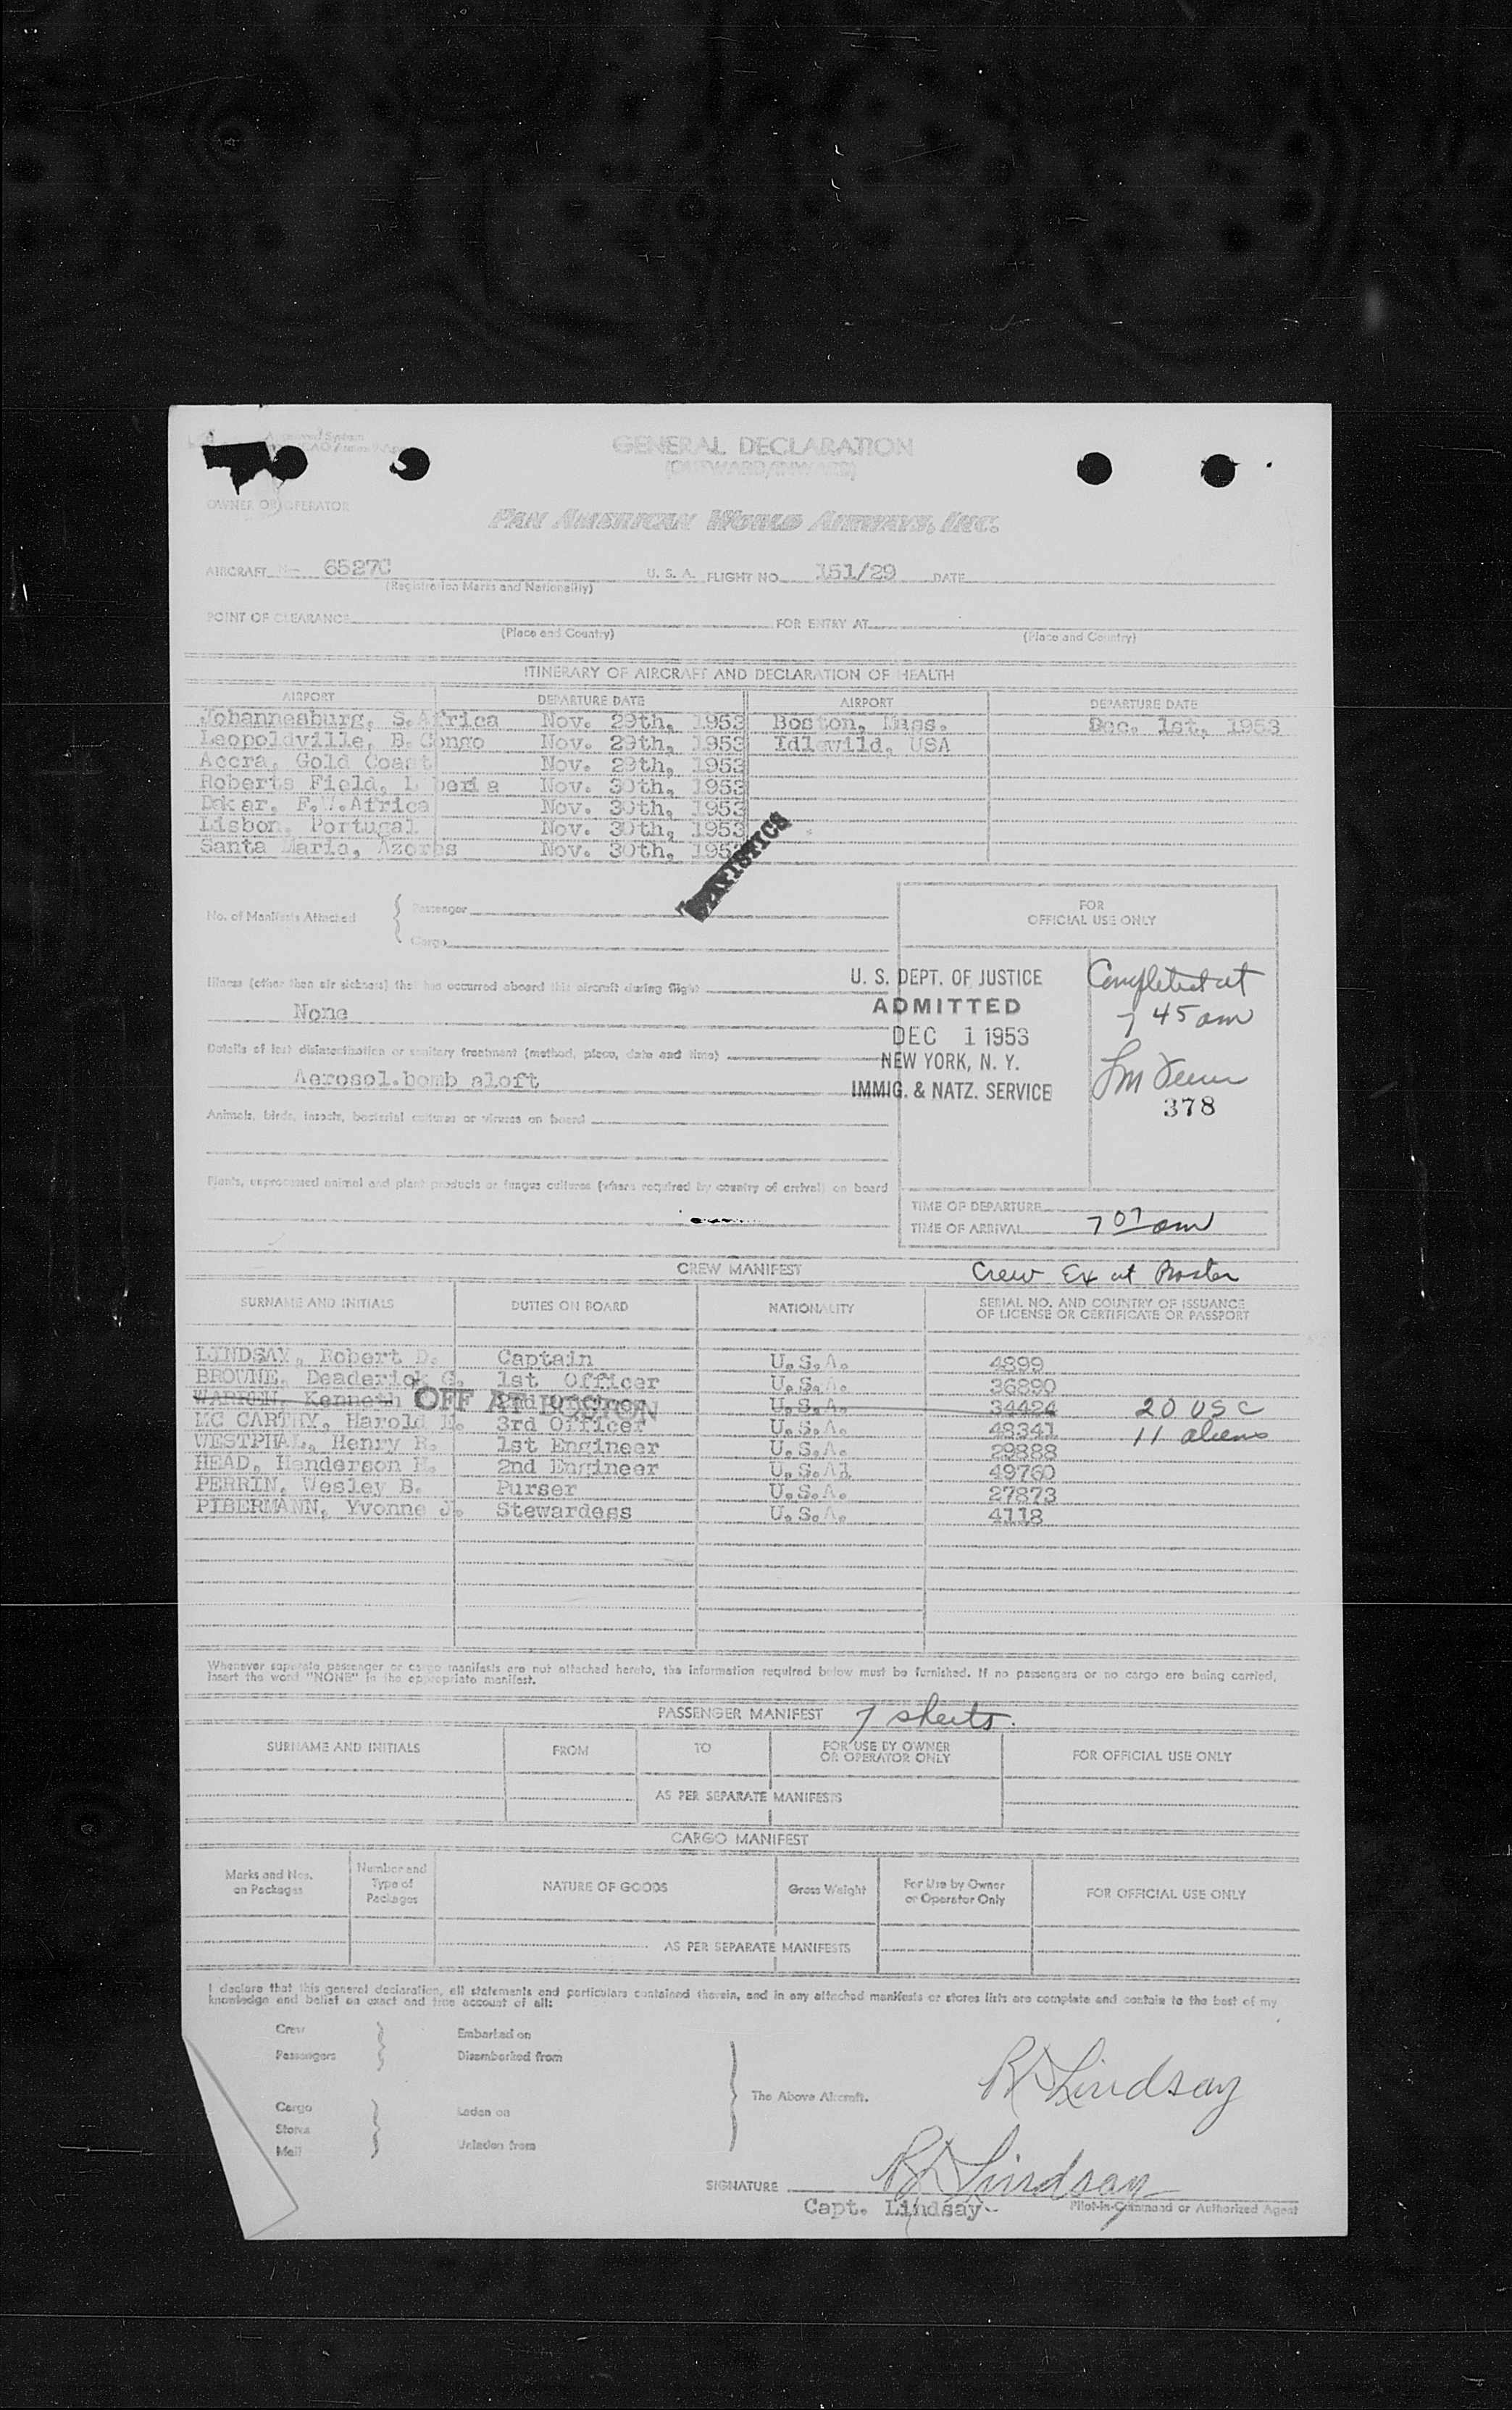 GENERAL DECLARATION
(OUTWARD/INWARD)
OWNER OR OPERATOR
PAN AMERICAN WORLD AIRWAYS, INC.
AIRCRAFT N- 6527C U. S. A. FLIGHT NO. 151/29 DATE
(Registration Marks and Nationality)
POINT OF CLEARANCE FOR ENTRY AT
(Place and Country) (Place and Country)
ITINERARY OF AIRCRAFT AND DECLARATION OF HEALTH
AIRPORT DEPARTURE DATE AIRPORT DEPARTURE DATE
Johannesburg, S.Africa Nov. 29th, 1953 Boston, Mass. Dec. 1st, 1953
Leopoldville, B.Congo Nov. 29th, 1953 Idlewild, USA
Accra, Gold Coast Nov. 29th, 1953
Roberts Field, Liberia Nov. 30th, 1953
Dakar, F.W.Africa Nov. 30th, 1953
Lisbon, Portugal Nov. 30th, 1953
Santa Maria, Azores Nov. 30th, 1953
STATISTICS
No. of Manifests Attached { Passenger
Cargo
FOR
OFFICIAL USE ONLY
Illness (other than air sickness) that has occurred aboard this aircraft during flight
None
Details of last disinsectization or sanitary treatment (method, place, date and time)
Aerosol.bomb aloft
Animals, birds, insects, bacterial cultures or viruses on board
Plants, unprocessed animal and plant products or fungus cultures (where required by country of arrival) on board
U. S. DEPT. OF JUSTICE
ADMITTED
DEC 1 1953
NEW YORK, N. Y.
IMMIG. & NATZ. SERVICE
Completed at
7 45 am
378
TIME OF DEPARTURE
TIME OF ARRIVAL 7 07 am
CREW MANIFEST Crew Ex at Boston
SURNAME AND INITIALS DUTIES ON BOARD NATIONALITY SERIAL NO. AND COUNTRY OF ISSUANCE
OF LICENSE OR CERTIFICATE OR PASSPORT
LINDSAY, Robert D. Captain U.S.A. 4899
BROWNE, Deaderick G. 1st Officer U.S.A. 36890
WARREN, Kenneth OFF AT BOSTON 2nd Officer U.S.A. 34424 20 USC
MC CARTHY, Harold E. 3rd Officer U.S.A. 48341 11 aliens
WESTPHAL, Henry R. 1st Engineer U.S.A. 29888
HEAD, Henderson H. 2nd Engineer U.S.A1 49760
PERRIN, Wesley B. Purser U.S.A. 27873
PIBERMANN, Yvonne J. Stewardess U.S.A. 4118
Whenever separate passenger or cargo manifests are not attached hereto, the information required below must be furnished. If no passengers or no cargo are being carried,
insert the word "NONE" in the appropriate manifest.
PASSENGER MANIFEST 7 sheets.
SURNAME AND INITIALS FROM TO FOR USE BY OWNER
OR OPERATOR ONLY FOR OFFICIAL USE ONLY
AS PER SEPARATE MANIFESTS
CARGO MANIFEST
Marks and Nos.
on Packages Number and
Type of
Packages NATURE OF GOODS Gross Weight For Use by Owner
or Operator Only FOR OFFICIAL USE ONLY
AS PER SEPARATE MANIFESTS
I declare that this general declaration, all statements and particulars contained therein, and in any attached manifests or stores lists are complete and contain to the best of my
knowledge and belief an exact and true account of all:
Crew Embarked on
Passengers Disembarked from
The Above Aircraft.
Cargo Laden on
Stores
Mail Unladen from
R D Lindsay
SIGNATURE R D Lindsay
Capt. Lindsay- Pilot-in-Command or Authorized Agent